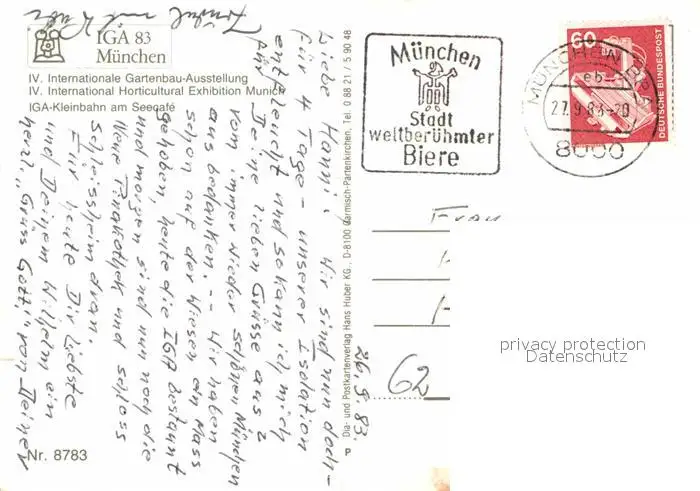 IGA 83
München
IV. Internationale Gartenbau-Ausstellung
IV. International Horticultural Exhibition Munich
IGA-Kleinbahn am Seecafé
Liebe Hanni, Wir sind nun doch -
für 4 Tage - unserer Isolation
entfleucht und so kann ich mich
für Deine lieben Grüsse aus
vom immer wieder schönen München
aus bedanken. -- Wir haben
schon auf der Wiesen ein Mass
gehoben, heute die IGA bestaunt
und morgen sind nun noch die
Neue Pinakothek und Schloss
Schleissheim dran.
Für heute Dir liebste
und Deinem Wilhelm ein
herzl. „Grüss Gott," von Deiner
26.9.83.
Nr. 8783
Dia- und Postkartenverlag Hans Huber KG., D-8100 Garmisch-Partenkirchen, Tel. 0 88 21 / 5 90 48
P
München
Stadt
weltberühmter
Biere
MÜNCHEN
eb
27.9.83-20
8000
60
DEUTSCHE BUNDESPOST
Frau
62
privacy protection
Datenschutz